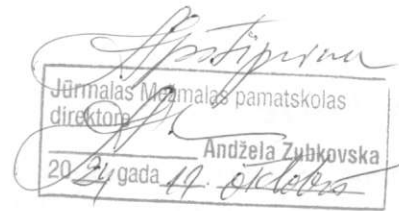 Apstiprinu
Jūrmalas Mežmalas pamatskolas
direktore
Andžela Zubkovska
20 24 gada 19. oktobris